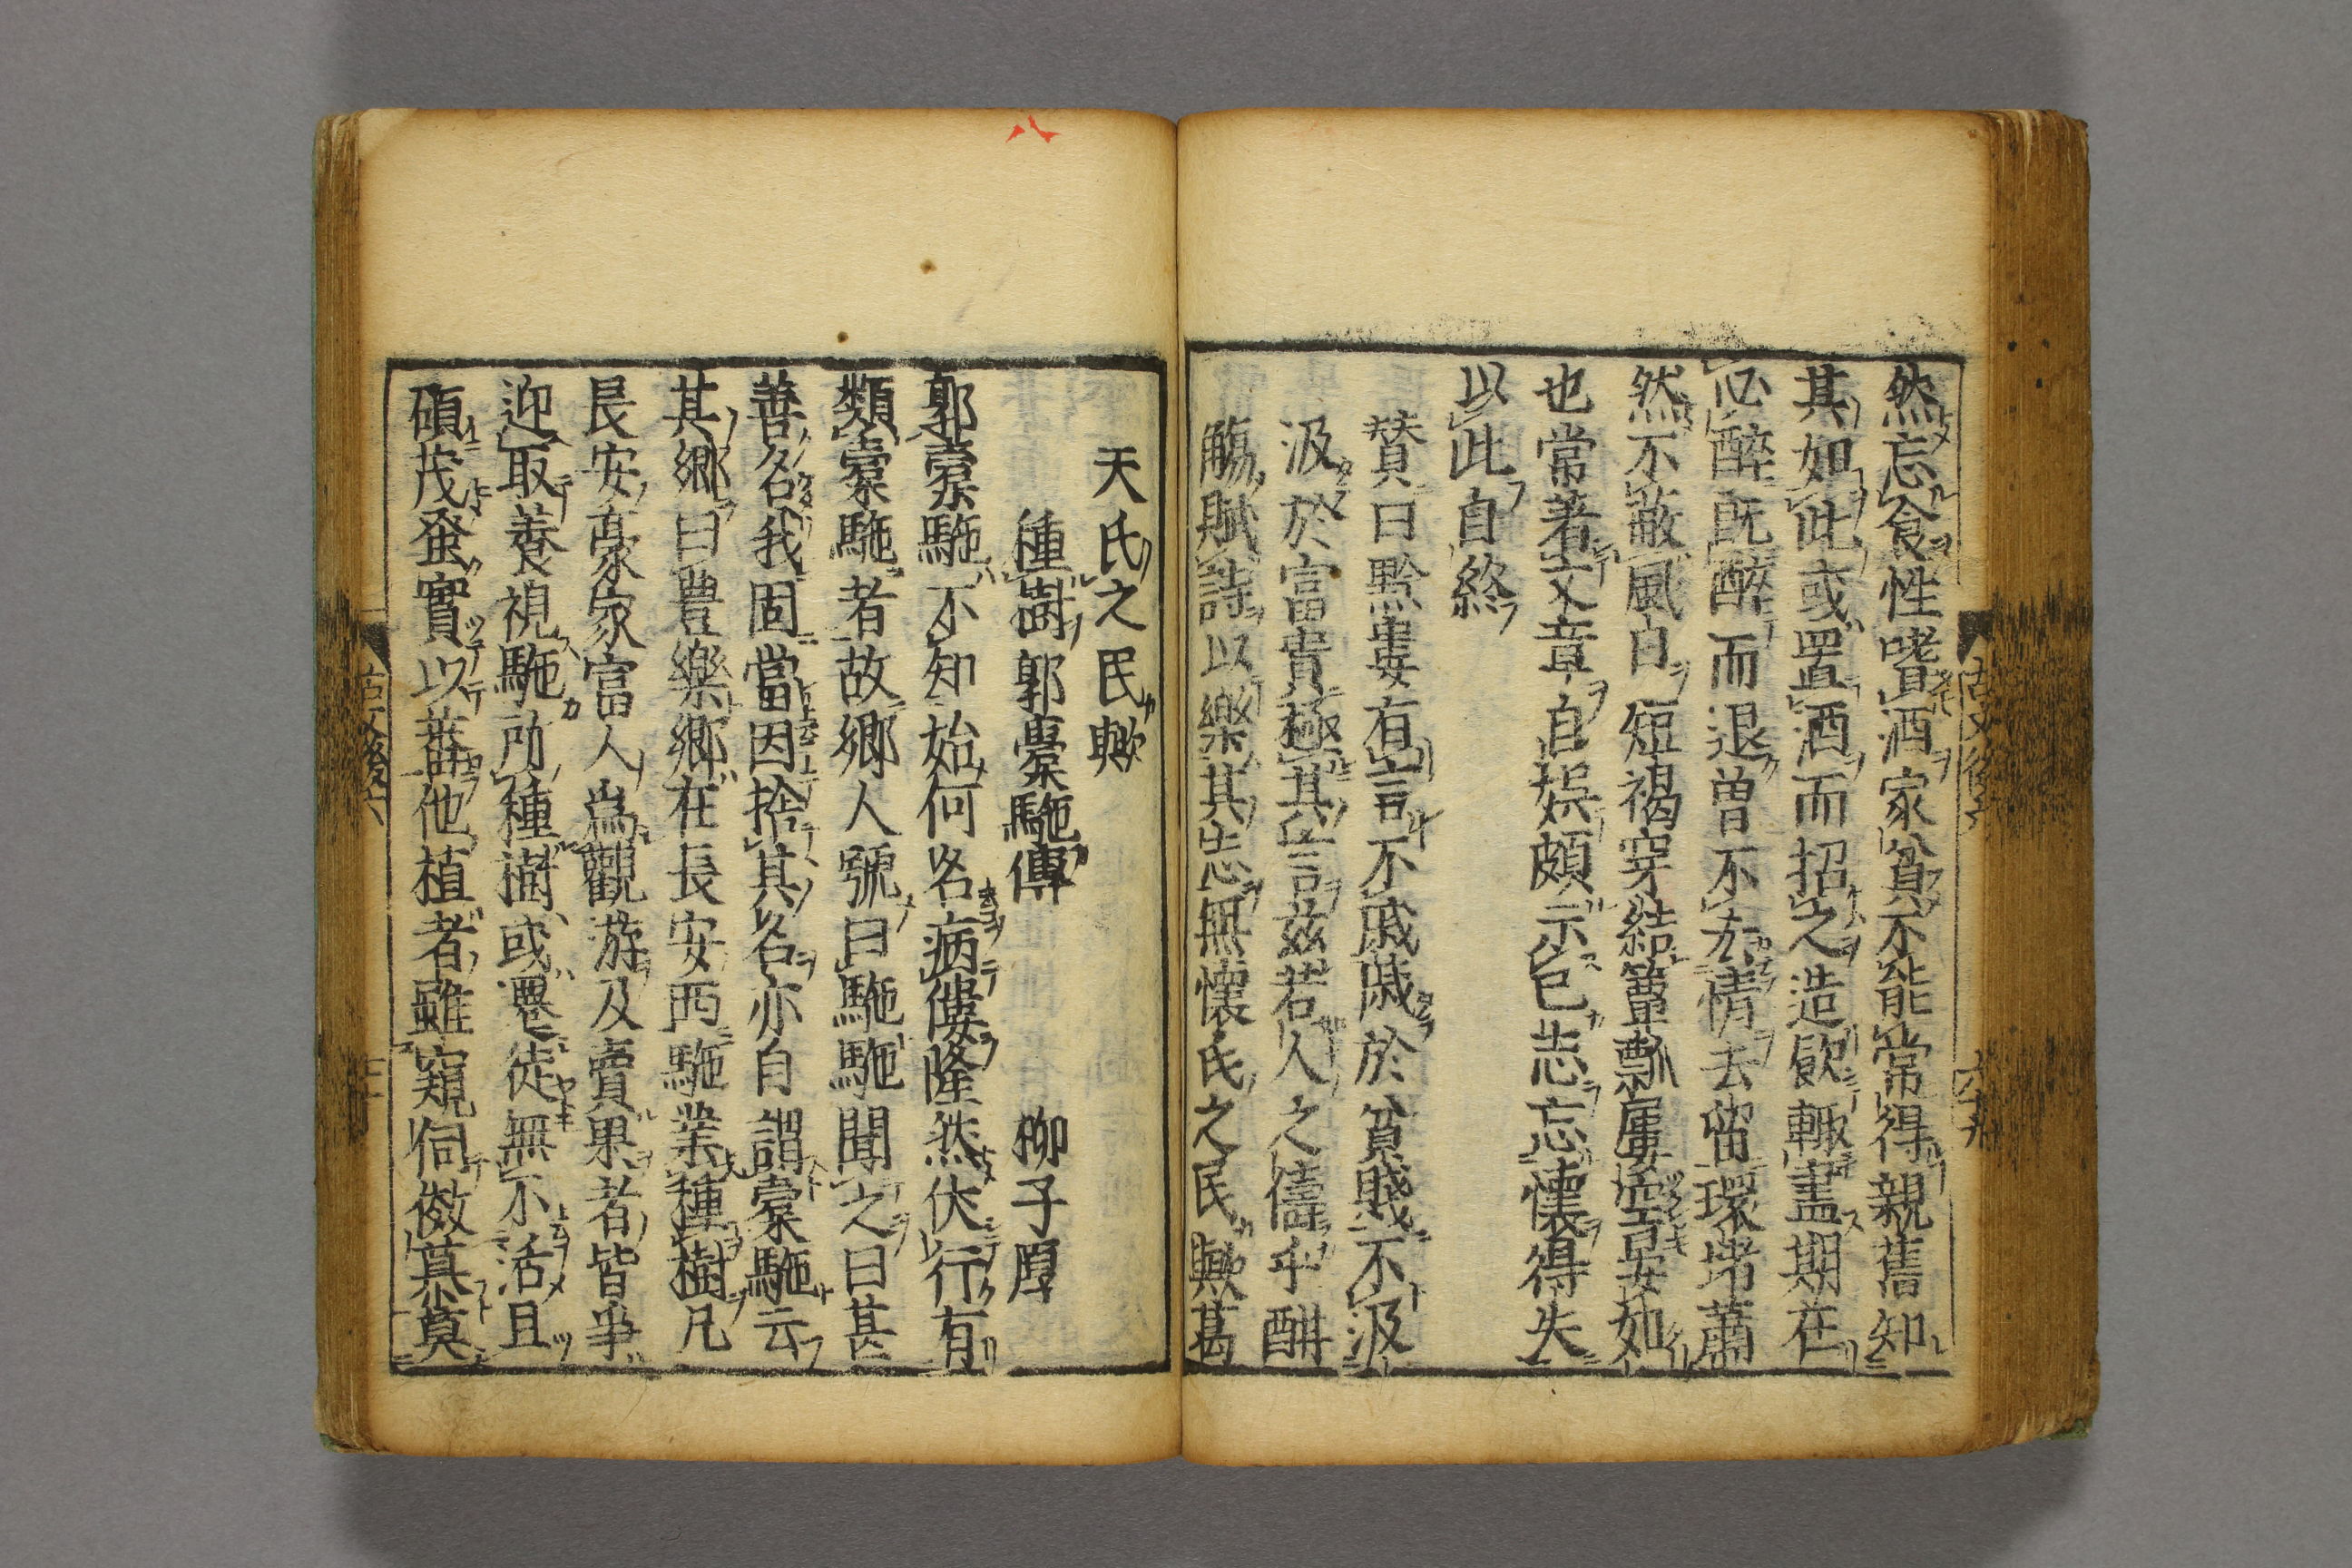 然忘食性嗜酒家貧不能常得親舊知
其如此或置酒而招之造飲輙盡期在
必醉既醉而退曾不吝情去留環堵蕭
然不蔽風日短褐穿結簞瓢屢空晏如
也常著文章自娯頗示已志忘懷得失
以此自終
賛曰黔婁有言不戚戚於貧賤不汲
汲於富貴極其言兹若人之儔乎酣
觴賦詩以樂其志無懷氏之民歟葛
天氏之民歟
種樹郭橐駞傳 柳子厚
郭橐駞不知始何名病僂隆然伏行有
類橐駞者故郷人號曰駞駞聞之曰甚
善名我固當因捨其名亦自謂橐駞云
其郷曰豊樂郷在長安西駞業種樹凡
長安豪家富人爲觀游及賣果者皆爭
迎取養視駞所種樹或遷徙無不活且
碩茂蚤實以蕃他植者雖窺伺傚慕莫
古文後六
八